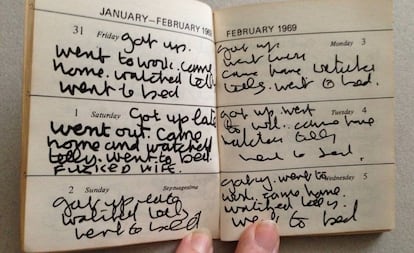 JANUARY—FEBRUARY 1969
31 Friday got up.
went to work. came
home. watched telly
went to bed
1 Saturday Got up late
went out. Came
home and watched
telly. went to bed.
FUCKED WIFE.
2 Sunday Septuagesima
got up late
watched telly
went to bed
FEBRUARY 1969
got up. Monday 3
went work
came home watched
telly. went to bed.
got up. went Tuesday 4
to work. came home
watched telly
went to bed.
got up. went to Wednesday 5
work. came home.
watched telly.
went to bed